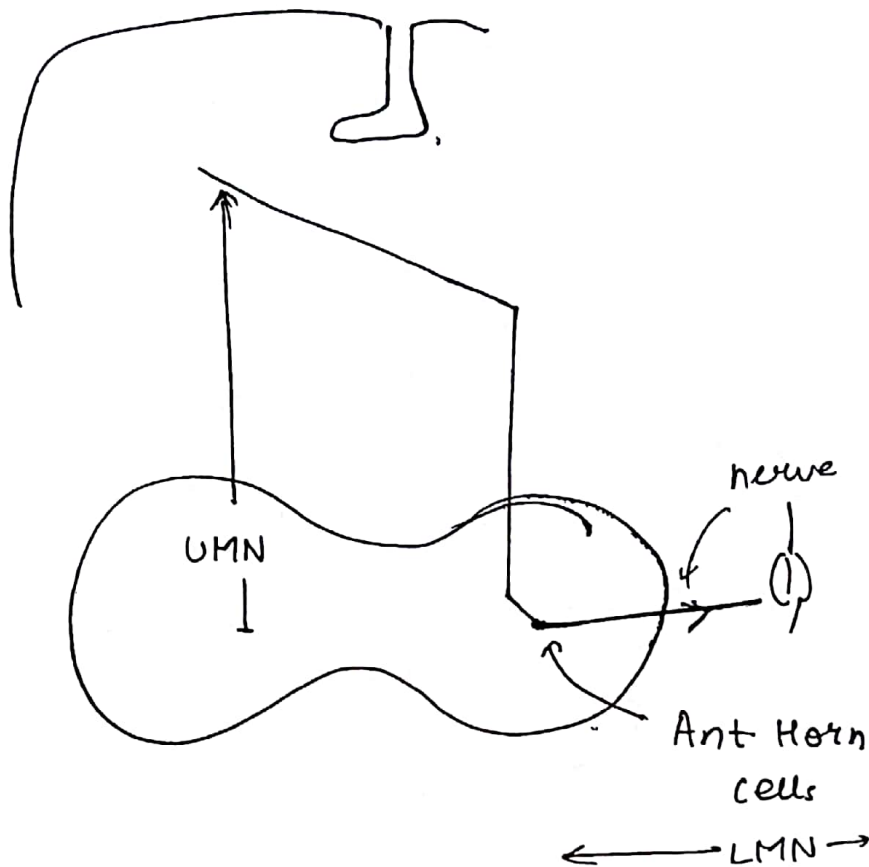 nerve
UMN
Ant Horn
cells
LMN